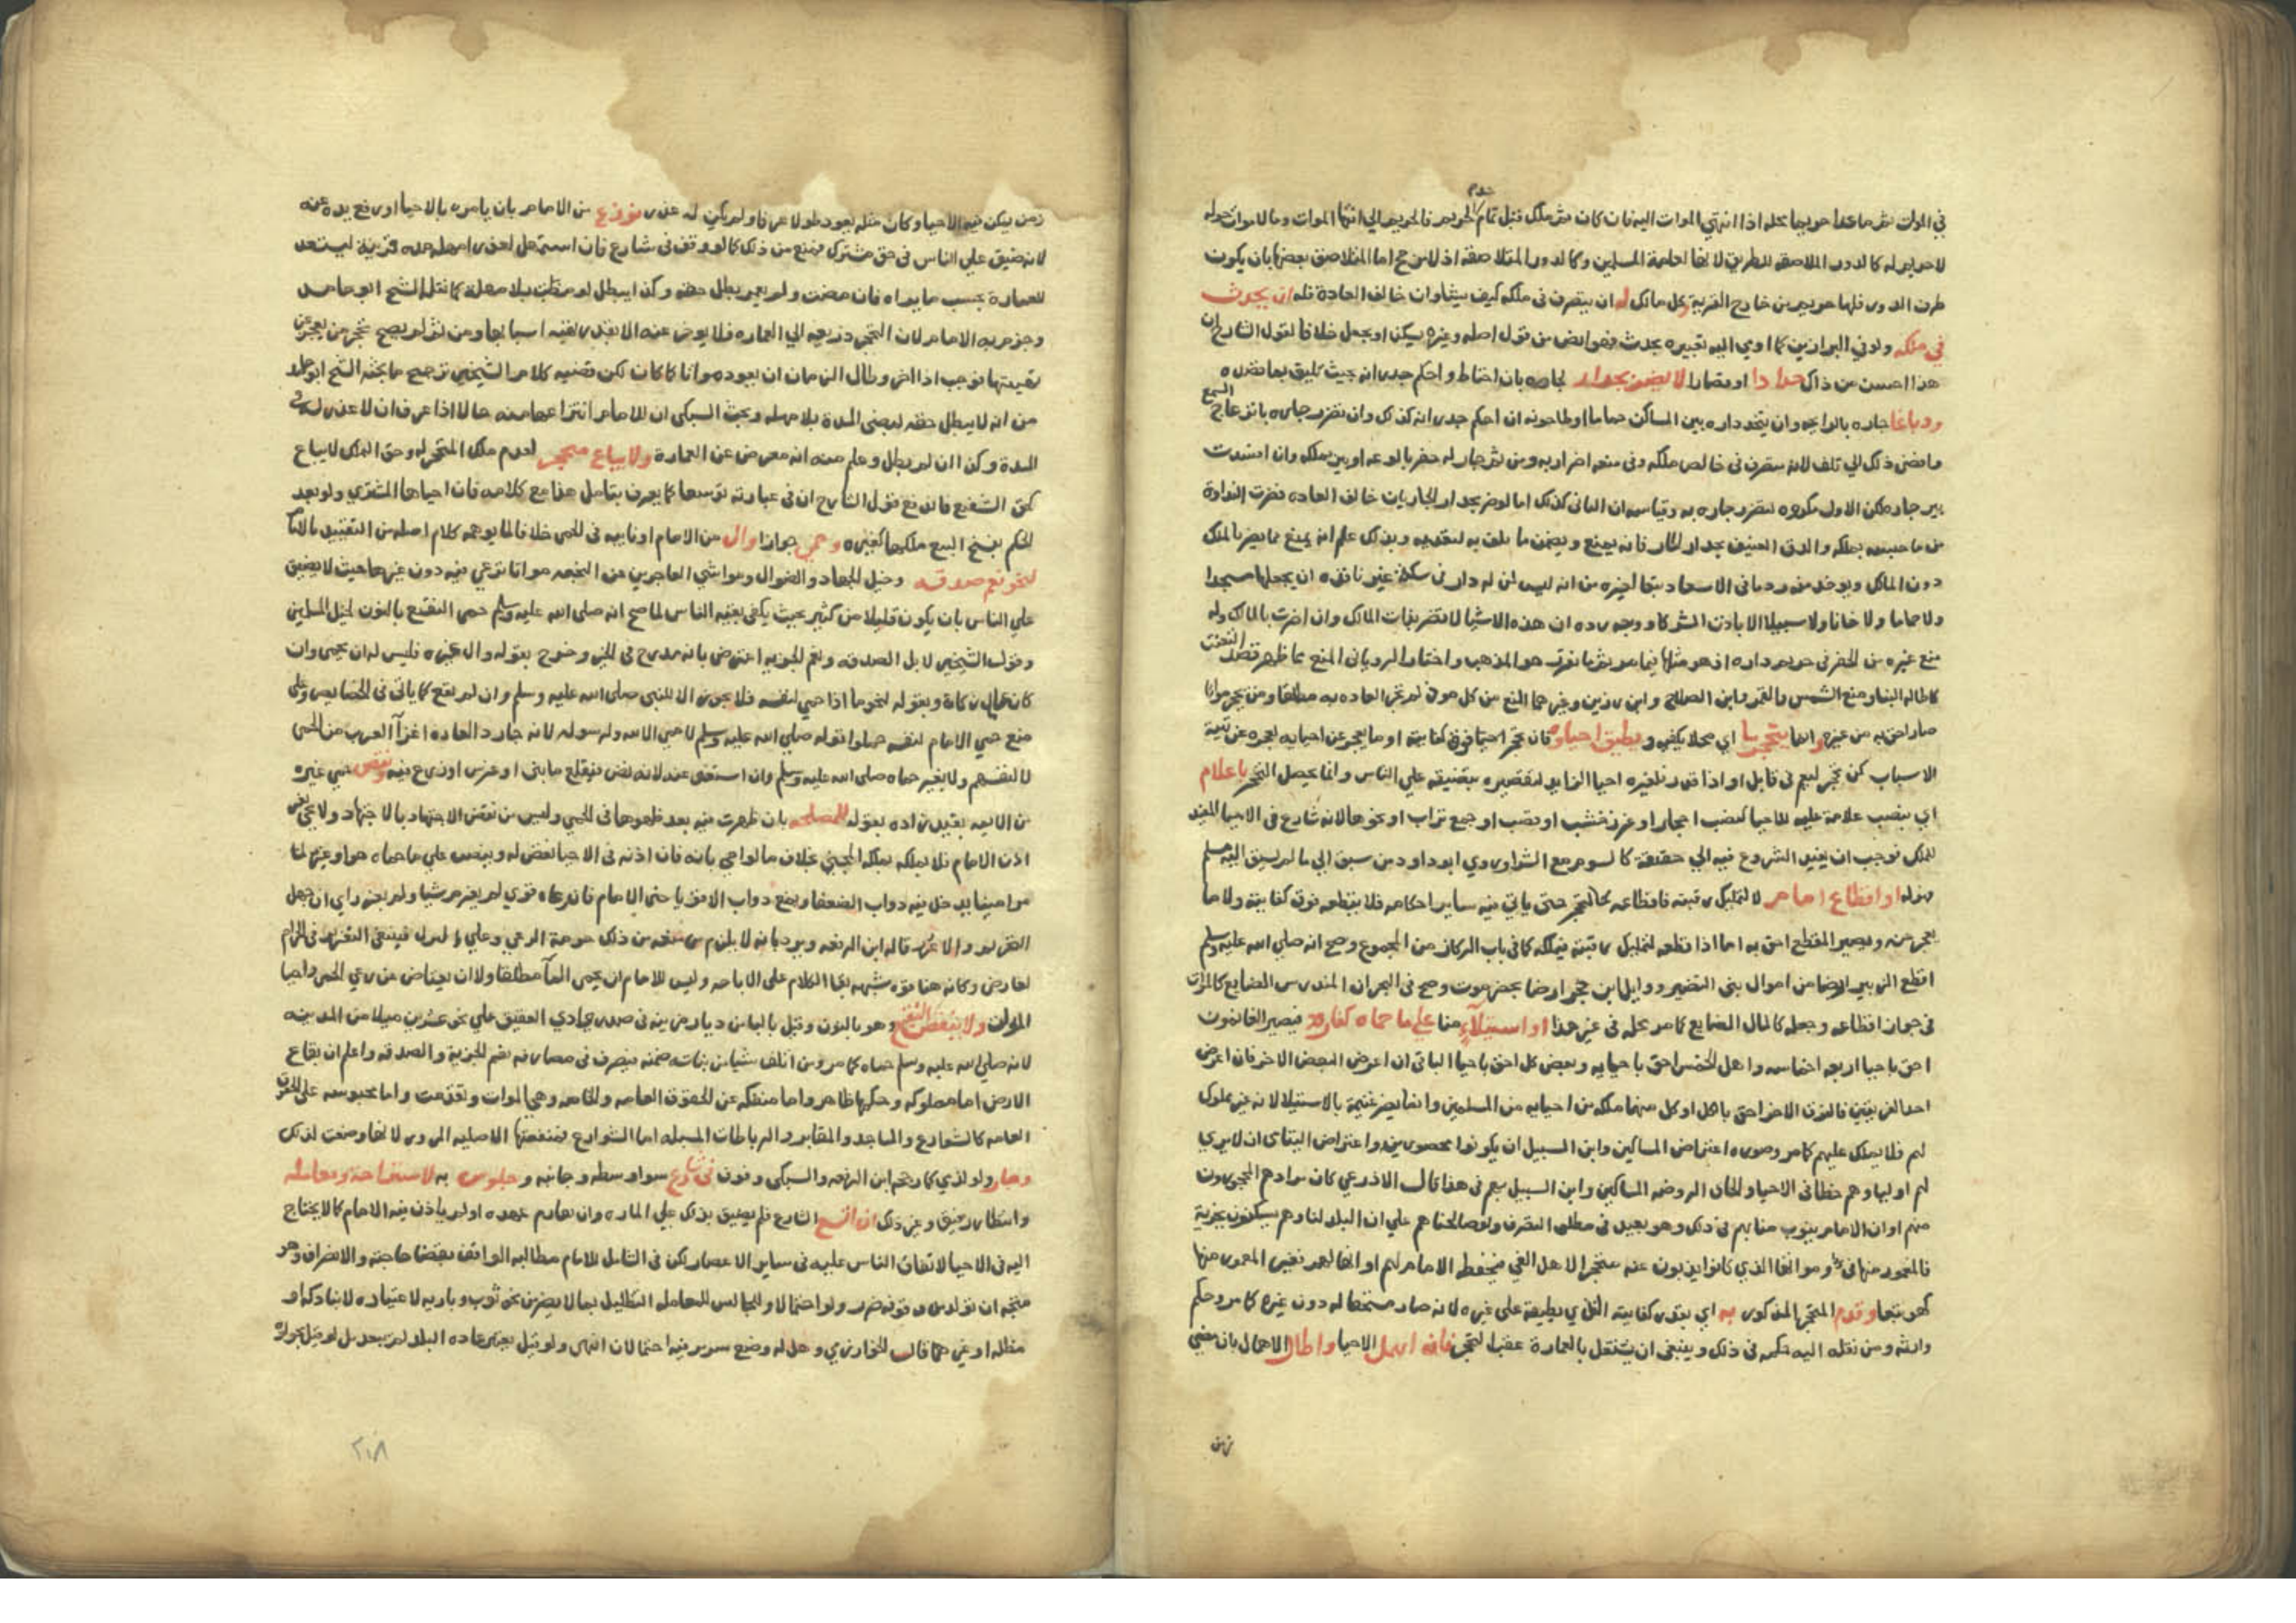 في الموات ثم ما عدا حريمها محله اذا انتهي الموات اليه فان كان ثم ملك قبل تمام الحريم فالحريم الي انتها الموات وما لا موات حوله
لا حريم له كالدور الملاصقه للطريق لانها لعامة المسلمين وكالدور المتلاصقه اذ لا مرجح اما المتلاصق بعضها بان يكون
طرف الدور فلها حريم من خارج القرية وكل مالك له ان يتصرف في ملكه كيف يشا وان خالف العادة فله ان يحدث
في ملكه
هذا احسن من ذاك حدادا او قصارا لا يضر بجدار لجاره بان احتاط واحكم جدرانه بحيث يليق بما يقصده
ودباغا جاره بالرايحه وان يتخذ داره بين المساكن حماما او طاحونه ان احكم جدرانه كذلك وان تضرر جاره بانزعاج السمع
وافضي ذلك الي تلف لانه متصرف في خالص ملكه وفي منعه اضرار به ومن ثم جاز له حفر بالوعه او بير بملكه وان افسدت
بير جاره لكن الاول مكروه لتضرر جاره به وقياسه ان الثاني كذلك اما لو ضر بجدار الجار بان خالف العاده
دون المالك
ولا حماما ولا خانا ولا سبيلا الا باذن الشركا ووجه رده ان هذه الاشيا لا تضر بذات المالك وان اضرت بالمالك وله
منع غيره من الحفر في حريم داره اذ هو مثلها فيما مر ثم ما تقرر هو المذهب واختار الروياني المنع مما ظهر قصد التعنت
كاطالة البنا ومنع الشمس والقمر وابن الصلاح وابن رزين وغيرهما المنع من كل موذ لم تجر العاده به مطلقا ومن تحجر مواتا
صار احق به من غيره وانما يتحجر ما اي محلا يكفيه ويطيق احياوه فان تحجر احيا فوق كفايته او ما يعجز عن احيايه لعجزه عن تهيئة
الاسباب كمن تحجر ليعمر في قابل او اذا قدر فلغيره احيا الزايد لتقصيره بتضييقه علي الناس وانما يحصل التحجر باعلام
اي بنصب علامة عليه للاحيا كنصب احجار او غرز خشب او قصب او جمع تراب او نحوها لانه شارع في الاحيا المفيد
للملك فوجب ان يفيد الشروع فيه احقية كالسوم مع الشرا وروي ابو داود من سبق الي ما لم يسبق اليه مسلم
فهو له او اقطاع امام لا لتمليك رقبته فاقطاعه كالتحجر حتى ياتي فيه ساير احكامه فلا يقطعه فوق كفايته ولا ما
يعجز عنه ويصير المقطع احق به اما اذا اقطعه لتمليك رقبته فيملكه كما في باب الركاز من المجموع وصح انه صلي الله عليه وسلم
اقطع الزبير ارضا من اموال بني النضير ووايل بن حجر ارضا بحضرموت وصح في البحر ان المندرس الضايع كالموات
في جواز اقطاعه وجعله كالمال الضايع كما مر محله في غير هذا او استيلاء منا علي ما حماه كفار فيصير الغانمون
احق باحيا اربعة اخماسه واهل الخمس احق باحيايه وبعض كل احق باحيا الباقي ان اعرض البعض الاخر فان اعرض
احد الفريقين فالفريق الاخر احق بالكل او كل منهما ملكه من احياه من المسلمين وانما يصر غنيمة بالاستيلا لانه غير مملوك
لهم فلا يملك عليهم كما مر وصوره اعتراض المساكين وابن السبيل ان يكونوا محصورين واعتراض اليتامى ان لا يري
لهم اولياوهم حظا في الاحيا وللخان الروضه المساكين وابن السبيل بهم في هذا قال الاذرعي كان مرادهم المحجورون
منهم او ان الامام ينوب منابهم في ذلك وهو بعيد في مطلق التصرف ولو صالحناهم علي ان البلد لنا وهم يسكنون بجزية
فالمعمور منها في ومواتها الذي كانوا يذبون عنه متحجر لاهل الفي فيحفظه الامام لهم او انها لهم فغير المعمور منها
كهو تبعا وقدم المتحجر المذكور به اي بقدر كفايته الذي يطيقه علي غيره لانه صار مستحقا له دون غيره كما مر وحكم
وارثه ومن نقله اليه حكمه في ذلك وينبغي ان يشتغل بالعمارة عقب التحجر فان اهمل الاحيا واطال الاهمال بان مضي
زمن
زمن يمكن فيه الاحيا وكان مثله يعود طولا عرفا ولم يكن له عذر نوزع من الامام بان يامره بالاحيا او رفع يده عنه
لانه ضيق علي الناس في حق مشترك فمنع من ذلك كما لو وقف في شارع فان استمهل لعذر امهل مده قريبة ليستعد
للعمارة بحسب ما يراه فان مضت ولم يعمر بطل حقه وكذا يبطل لو مضت بلا مهلة كما نقله الشيخ ابو حامد
وجزم به الامام لان التحجر ذريعه الي العماره فلا يعوض عنه الا بقدر تهيئه اسبابها ومن ثم لم يصح تحجر من يعجز عن
تهيئتها فوجب اذا اخر وطال الزمان ان يعود مواتا كما كان لكن قضيه كلام الشيخين ترجيح ما بحثه الشيخ ابو حامد
من انه لا يبطل حقه بمضي المدة بلا مهله وبحث السبكي ان للامام انتزاعها منه حالا اذا عرف ان لا عذر له في
المدة وكذا ان لم تطل وعلم منه انه معرض عن العمارة ولا يباع متحجر لعدم ملك المتحجر له وحق الملك لا يباع
كحق الشفيع فاندفع قول الشارح ان في عبارته توسعا كما يعرف بتامل هذا مع كلامه فان احياها المشتري ولو بعد
الحكم بفسخ البيع ملكها كغيره وحمى جوازا وال من الامام او نايبه في الحمى خلافا لما يوهمه كلام اصله من التقييد بالامام
لنحو نعم صدقه وخيل للجهاد والضوال ومواشي العاجزين عن النجعه مواتا ترعي فيه دون غيرها حيث لا يضيق
علي الناس بان يكون قليلا من كثير بحيث يكفي بقيه الناس لما صح انه صلى الله عليه وسلم حمى النقيع بالنون لخيل المسلمين
وقول الشيخين لابل الصدقه ونعم الجزيه اعترض بانه مدرج في الخبر وخرج بقوله وال غيره فليس له ان يحمي وان
كان عامل زكاة وبقوله لنحو ما اذا حمي لنفسه فلا يجوز الا للنبي صلى الله عليه وسلم وان لم يقع كما ياتي في الخصايص وعلي
منع حمي الامام لنفسه حملوا قوله صلي الله عليه وسلم لا حمي الا لله ولرسوله لانه جار د العاده اعزآ العرب من الحمى
لانفسهم ولا يغير حماه صلى الله عليه وسلم وان استغني عنه لانه نص فيقلع ما بني او غرس او زرع فيه ونقض حمي غيره
من الايمه بقيد زاده بقوله للمصلحه بان ظهرت فيه بعد ظهورها في الحمي وليس من نقض الاجتهاد بالاجتهاد ولا يحيى بغير
اذن الامام فلا يملكه بملكه المحيي بخلاف ما لو احيي باذنه فان اذنه في الاحيا نقض له وينصب علي ما حماه هو او غيره لها
امينا يدخل فيه دواب الضعفا ويمنع دواب الاقويا حتى الامام فان رعاه قوي لم يغرم شيا ولم يعزر راي ان جهل
التحريم والا عزر قاله ابن الرفعه ويرد بانه لا يلزم من منعه من ذلك حرمة الرعي وعلي التنزل فينبغي التعزير في الحرام
لعارض وكانه هنا قوه شبهه بقا الكلا علي الاباحه وليس للامام ان يحمي المآ مطلقا ولا ان يعتاض عن رعي الحمى واحيا
الموات ولا ينقض النقيع وهو بالنون وقيل بالبا من ديار مزينه في صدر وادي العقيق علي نحو عشرين ميلا من المدينه
لانه صلي الله عليه وسلم حماه كما مر ومن اتلف شيا من نباته ضمنه فيصرف في مصارف نعم الجزية والصدقه واعلم ان بقاع
الارض اما مملوكه وحكمها ظاهر واما منفكه عن الحقوق العامه والخاصه وهي الموات وتقدمت واما محبوسه علي الحقوق
العامه كالشوارع والمساجد والمقابر والرباطات المسبله اما الشوارع فمنفعتها الاصليه المرور لانها وضعت لذلك
وجاز ولو لذمي كما رجحه ابن الرفعه والسبكي وقوف في شارع سوا وسطه وجانبه وجلوس به لاستراحة ومعامله
وانتظار رفيق وغير ذلك ان اتسع الشارع فلم يضيق بذلك علي الماره وان تقادم عهده او لم ياذن فيه الامام كما لا يحتاج
اليه في الاحيا لاتفاق الناس عليه في ساير الاعصار لكن في الشامل للامام مطالبه الواقف بقضا حاجته والانصراف وهو
متجه ان تولد من وقوفه ضرر ولو احتمالا وللجالس للمعامله التظليل بما لا يضر من نحو ثوب وباريه لاعتياده لا بنا دكه او
مظله او غيرهما قال الخوارزمي وهل له وضع سرير فيه احتمالان انتهى ولو قيل بعبرة عاده البلد لم يبعد بل لو قيل بجوازه
٢٠٨